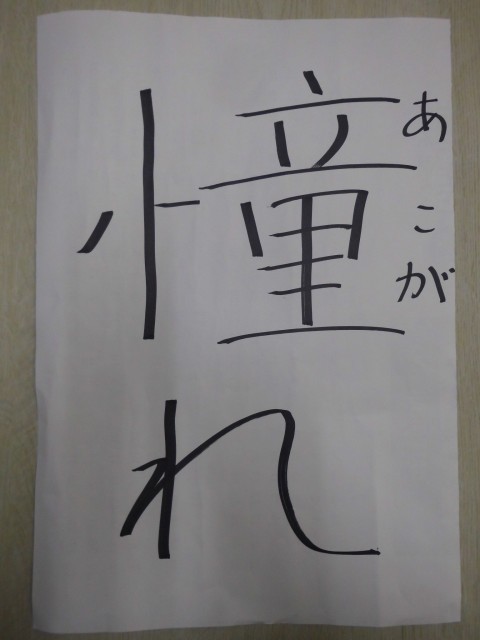 憧れ
あこが